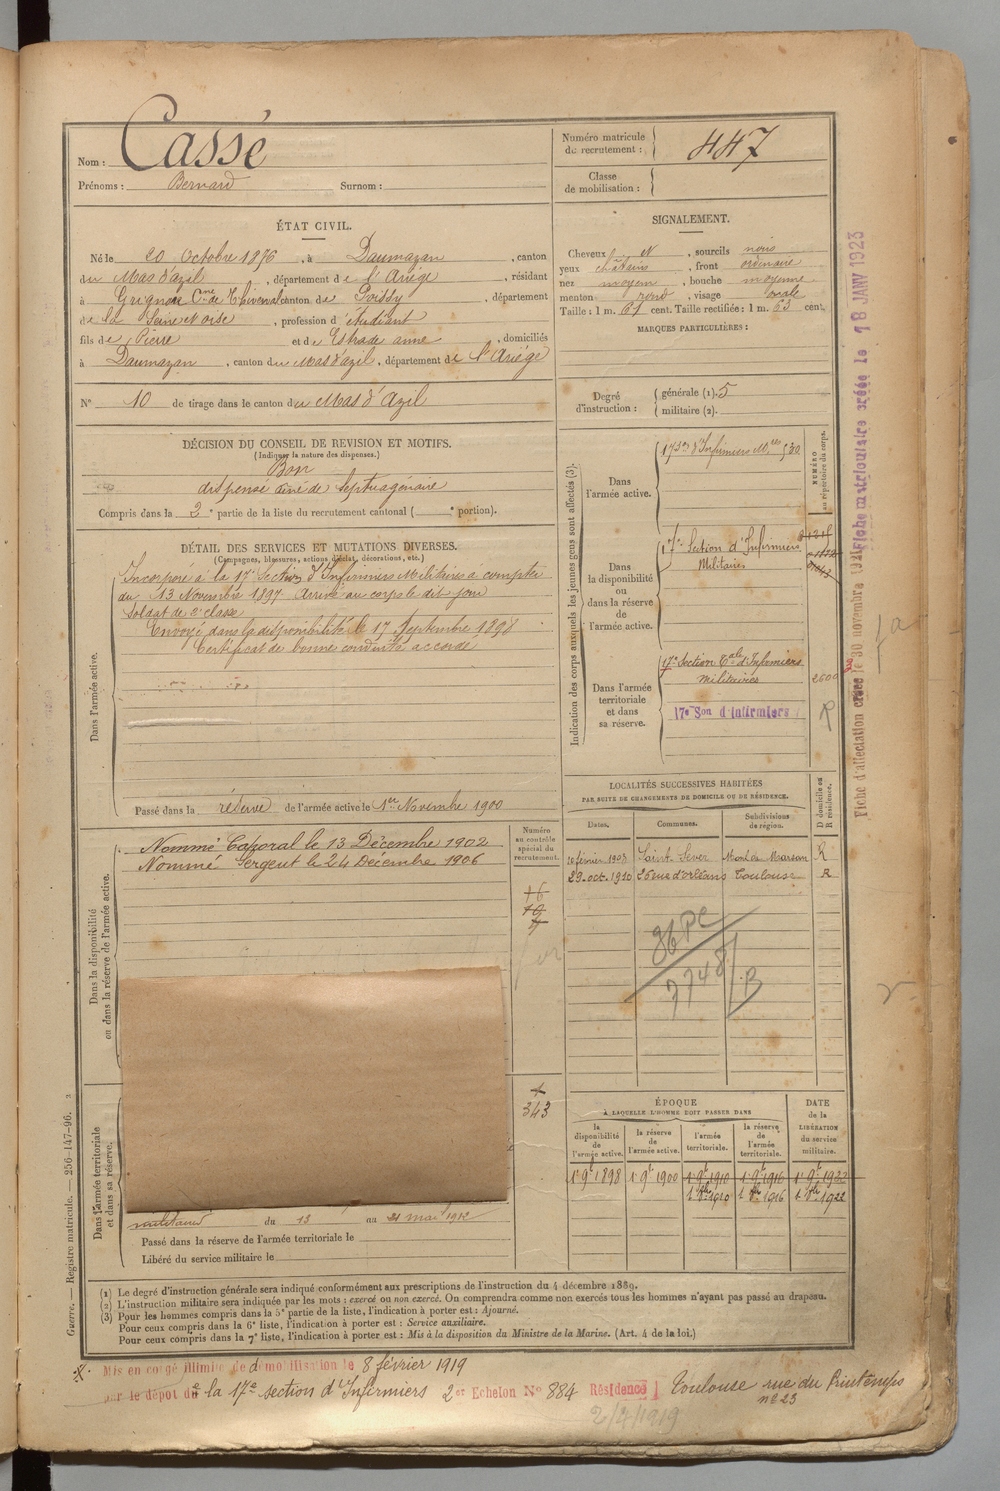 Nom : Cassé
Prénoms : Bernard Surnom :
Numéro matricule du recrutement : 447
Classe de mobilisation :
ÉTAT CIVIL.
Né le 20 Octobre 1876, à Daumazan, canton
du Mas d'azil, département de l'Ariége, résidant
à Grignon Cne de Thiverval canton de Poissy, département
de la Seine et oise, profession d'étudiant
fils de Pierre et de Estrade anne, domiciliés
à Daumazan, canton du Mas d'azil, département de l'Ariége
N° 10 de tirage dans le canton du Mas d'Azil
SIGNALEMENT.
Cheveux N, sourcils noirs
yeux chatains, front ordinaire
nez moyen, bouche moyenne
menton rond, visage ovale
Taille : 1 m. 61 cent. Taille rectifiée : 1 m. 63 cent.
MARQUES PARTICULIÈRES :
Degré d'instruction : générale (1). 5
militaire (2).
DÉCISION DU CONSEIL DE REVISION ET MOTIFS.
(Indiquer la nature des dispenses.)
Bon
dispensé ainé de Septuagénaire
Compris dans la 2e partie de la liste du recrutement cantonal ( e portion).
DÉTAIL DES SERVICES ET MUTATIONS DIVERSES.
(Campagnes, blessures, actions d'éclat, décorations, etc.)
Dans l'armée active.
Incorporé à la 17e Section d'Infirmiers Militaires à compter
du 13 Novembre 1897 Arrivé au corps le dit jour
Soldat de 2e classe
Envoyé dans la disponibilité le 17 Septembre 1898
Certificat de bonne conduite accordé
Passé dans la réserve de l'armée active le 1er Novembre 1900
Indication des corps auxquels les jeunes gens sont affectés (3).
NUMÉRO au répertoire du corps.
Dans l'armée active.
17 Son d'Infirmiers Mres 530
Dans la disponibilité ou dans la réserve de l'armée active.
17e Section d'Infirmiers
Militaires
Dans l'armée territoriale et dans sa réserve.
17e Section Tale d'Infirmiers
militaires 2600
17e Son d'Infirmiers
R
Dans la disponibilité ou dans la réserve de l'armée active.
Nommé Caporal le 13 Décembre 1902
Nommé Sergent le 24 Décembre 1906
Numéro au contrôle spécial du recrutement.
343
LOCALITÉS SUCCESSIVES HABITÉES
PAR SUITE DE CHANGEMENTS DE DOMICILE OU DE RÉSIDENCE.
Dates. Communes. Subdivisions de région. D domicile ou R résidence.
10 février 1903 Saint Sever Mont de Marsan R
29 oct. 1910 26 rue d'orléans Toulouse R
86 PC
7748
B
Dans l'armée territoriale et dans sa réserve.
militaires du 13 au 21 mai 1912
Passé dans la réserve de l'armée territoriale le
Libéré du service militaire le
ÉPOQUE
À LAQUELLE L'HOMME DOIT PASSER DANS
la disponibilité de l'armée active. la réserve de l'armée active. l'armée territoriale. la réserve de l'armée territoriale. DATE de la LIBÉRATION du service militaire.
1 9bre 1898 1 9bre 1900 1 9bre 1910 1 9bre 1916 1 9bre 1922
1 8bre 1910 1 8bre 1916 1 8bre 1922
(1) Le degré d'instruction générale sera indiqué conformément aux prescriptions de l'instruction du 4 décembre 1889.
(2) L'instruction militaire sera indiquée par les mots : exercé ou non exercé. On comprendra comme non exercés tous les hommes n'ayant pas passé au drapeau.
(3) Pour les hommes compris dans la 5e partie de la liste, l'indication à porter est : Ajourné.
Pour ceux compris dans la 6e liste, l'indication à porter est : Service auxiliaire.
Pour ceux compris dans la 7e liste, l'indication à porter est : Mis à la disposition du Ministre de la Marine. (Art. 4 de la loi.)
Mis en congé illimité de démobilisation le 8 février 1919
par le dépot de la 17e section d'Infirmiers 2er Echelon N° 884 Résidence Toulouse rue du Printemps
n° 23
2/4/1919
Guerre. — Registre matricule. — 256-147-96. 2
Fiche d'affectation créée le 30 novembre 1921
Fiche matriculaire créée le 18 JANV 1923